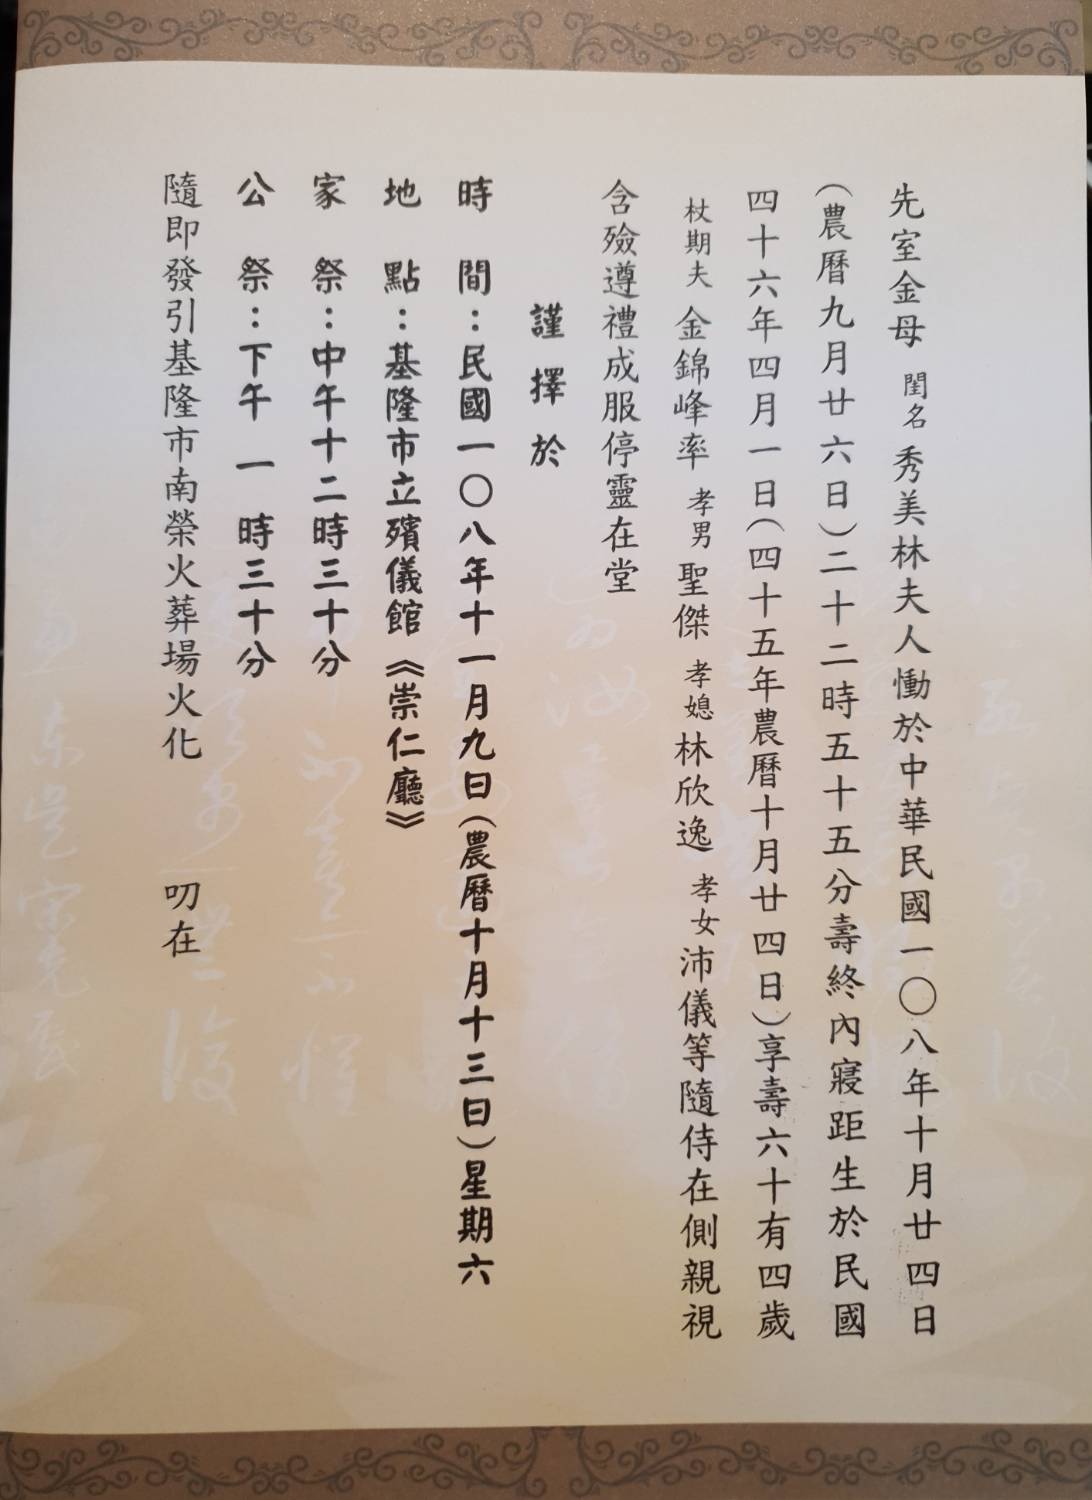 先室金母 閨名 秀美林夫人慟於中華民國一〇八年十月廿四日
(農曆九月廿六日)二十二時五十五分壽終內寢距生於民國
四十六年四月一日(四十五年農曆十月廿四日)享壽六十有四歲
杖期夫 金錦峰率 孝男 聖傑 孝媳 林欣逸 孝女 沛儀等隨侍在側親視
含殮遵禮成服停靈在堂
謹擇於
時間：民國一〇八年十一月九日(農曆十月十三日)星期六
地點：基隆市立殯儀館《崇仁廳》
家祭：中午十二時三十分
公祭：下午一時三十分
隨即發引基隆市南榮火葬場火化 叨在